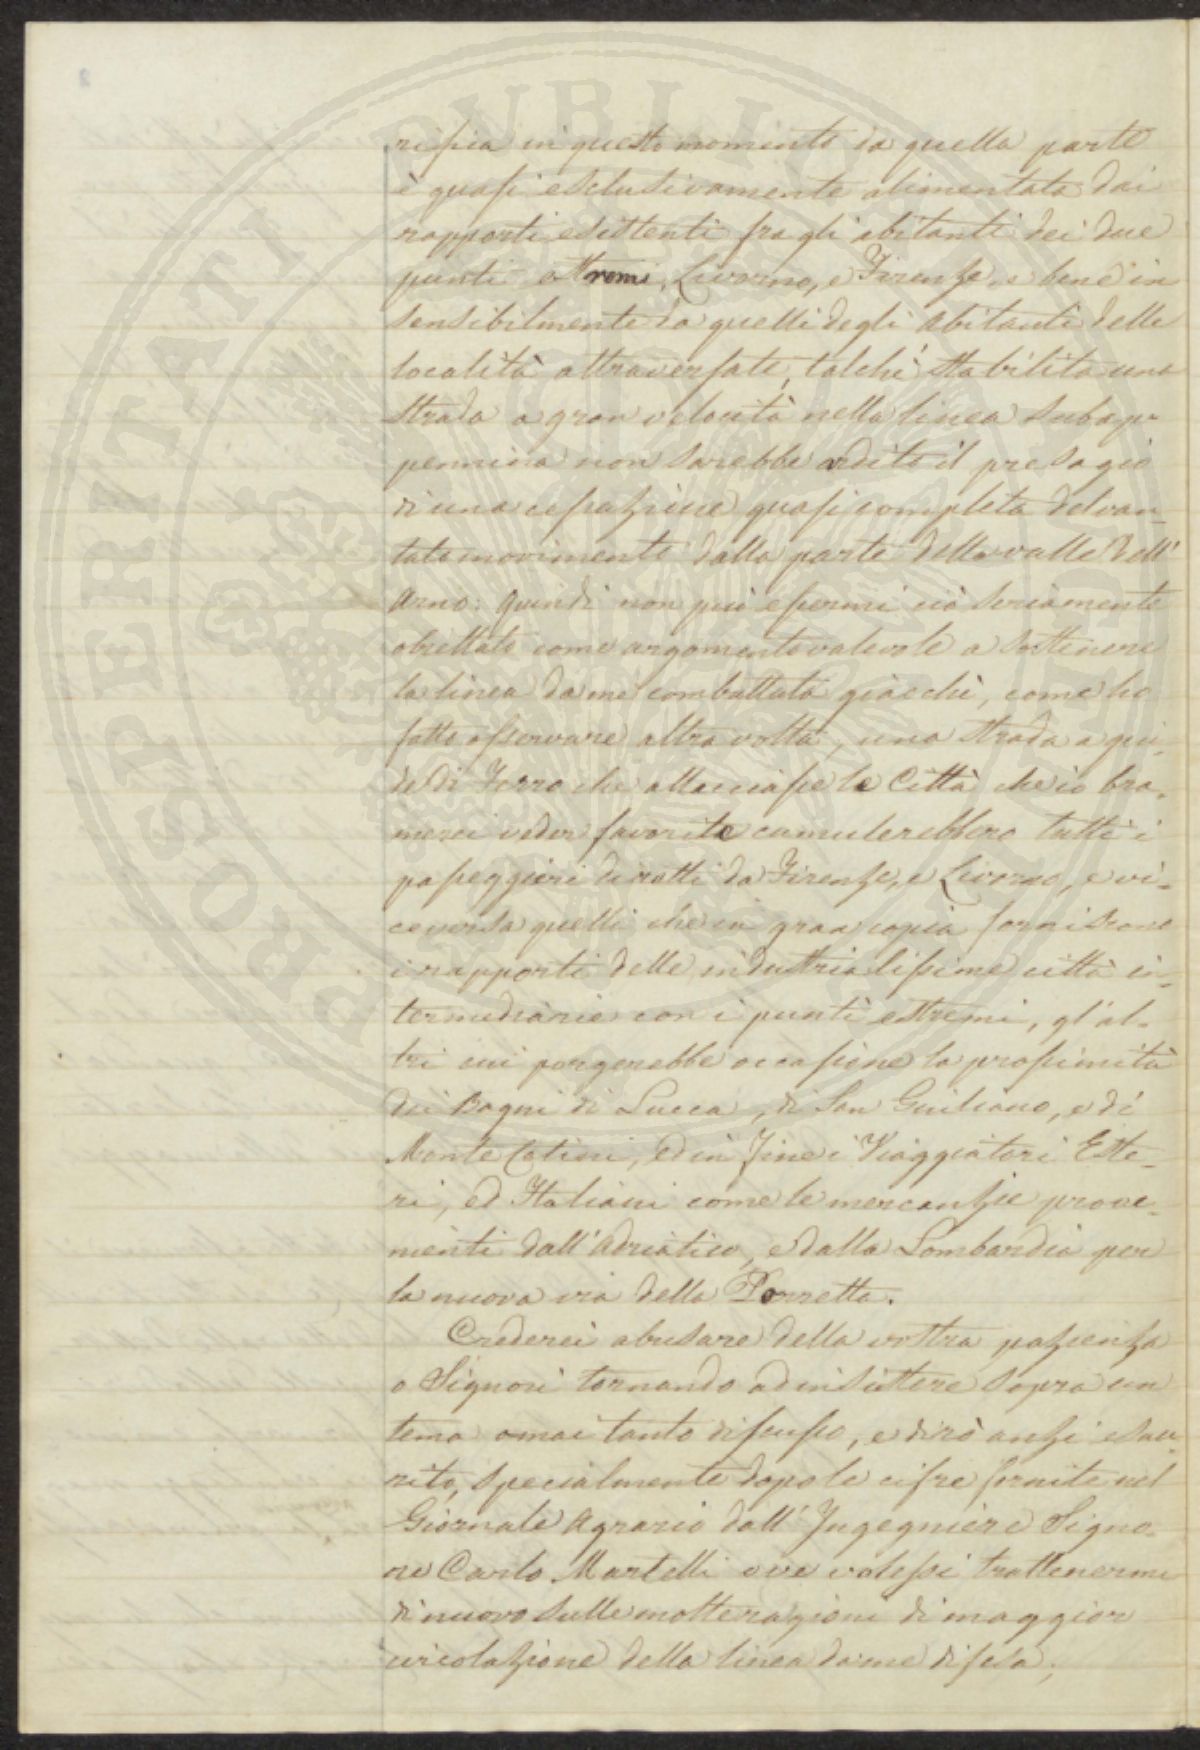 rifica in questo momento da quella parte
è quasi esclusivamente alimentata dai
rapporti esistenti fra gli abitanti dei due
punti estremi, Livorno, e Firenze, e bene in
sensibilmente da quelli degli abitanti delle
località attraversate, talchè stabilita una
strada a gran velocità nella linea subap-
pennina non sarebbe ardito il presagio
di una cessazione quasi completa del van-
tato movimento dalla parte della valle dell'
Arno: quindi non può essermi ciò seriamente
obiettato come argomento valevole a sostenere
la linea da me combattuta giacchè, come ho
fatto osservare altra volta, una strada a gui-
de di Ferro che allacciasse le Città che io bra-
merei veder favorite cumulerebbero tutti i
passeggieri diretti da Firenze, a Livorno, e vi-
ceversa quelli che in gran copia forniscono
i rapporti delle industrialissime città in-
termediarie con i punti estremi, gl'al-
tri cui porgerebbe occasione la prossimità
dei Bagni di Lucca, di San Giuliano, e di
Monte Catini, ed in fine i Viaggiatori Este-
ri, ed Italiani come le mercanzie prove-
nienti dall'Adriatico, e dalla Lombardia per
la nuova via della Porretta.
Crederei abusare della vostra pazienza
o Signori tornando ad insistere sopra un
tema omai tanto discusso, e dirò anzi esau-
rito, specialmente dopo le cifre fornite nel
Giornale Agrario dall'Ingegniere Signo-
re Carlo Martelli ove volessi trattenermi
di nuovo sulle molte ragioni di maggior
circolazione della linea da me difesa,